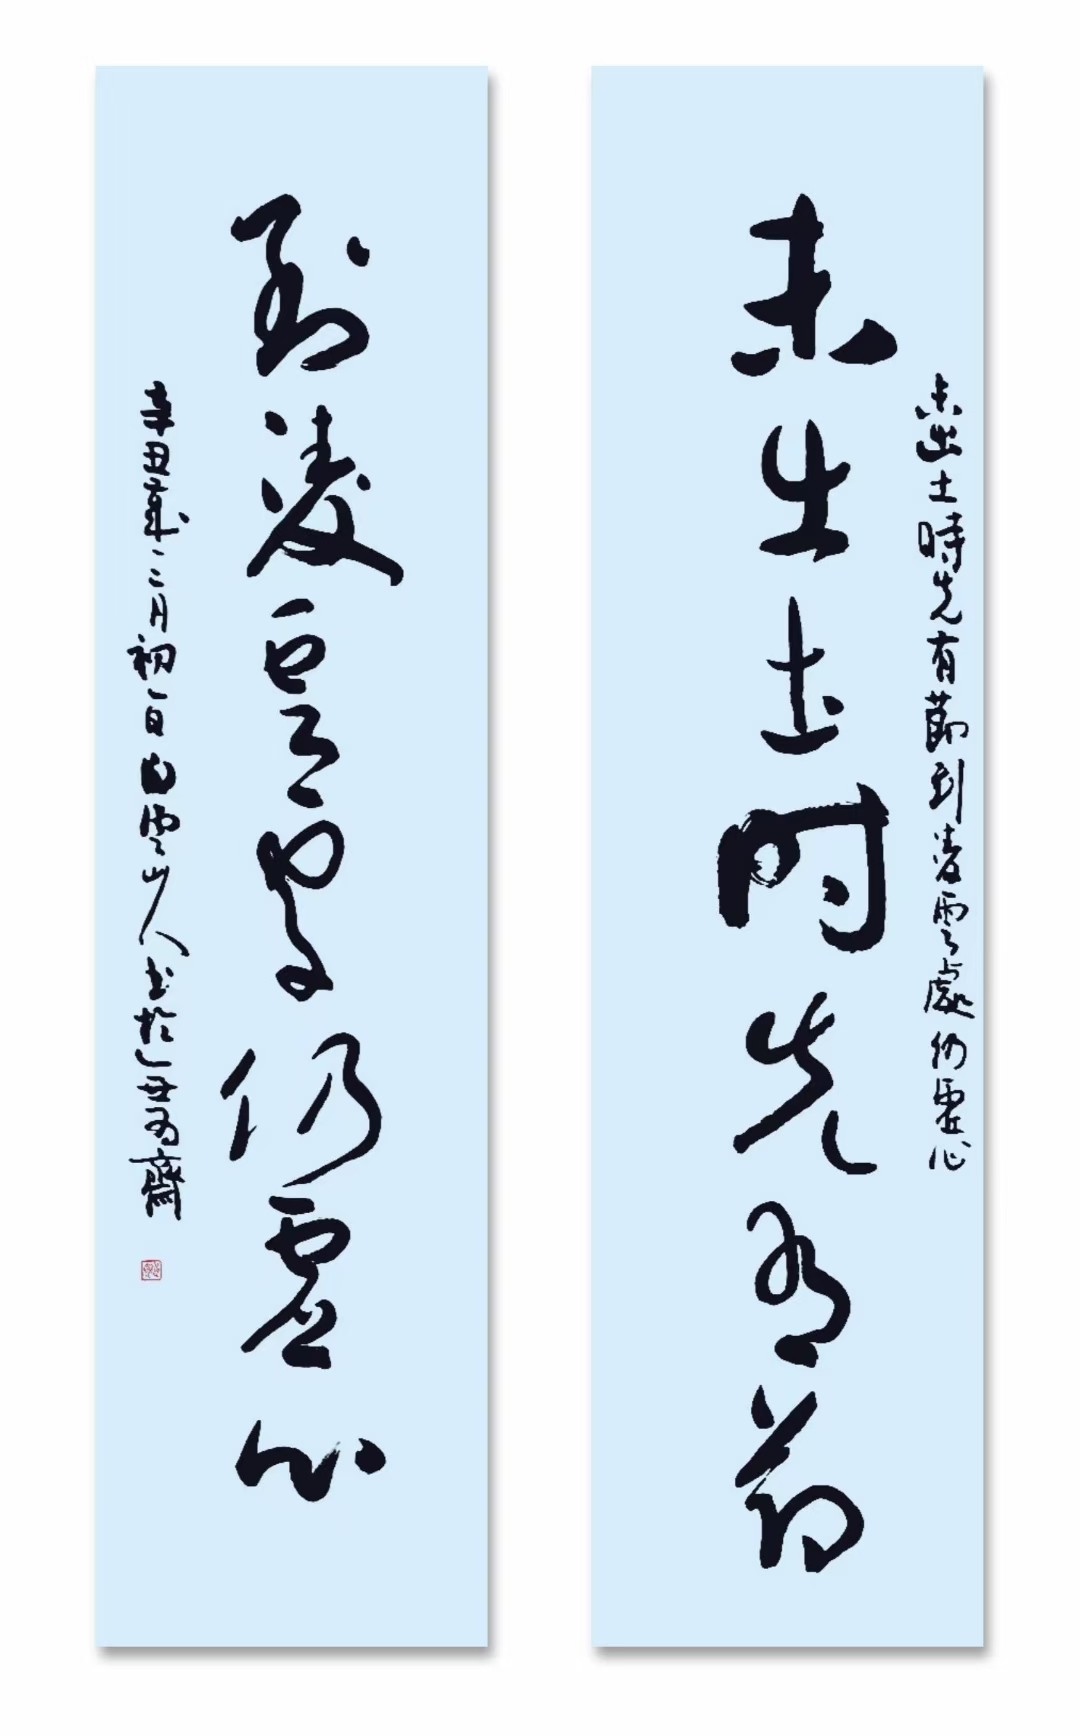 未出土時先有節到凌雲處仍虛心
未出土时先有节
到凌雲處仍虚心
辛丑歲二月初一日白雲山人书於齋